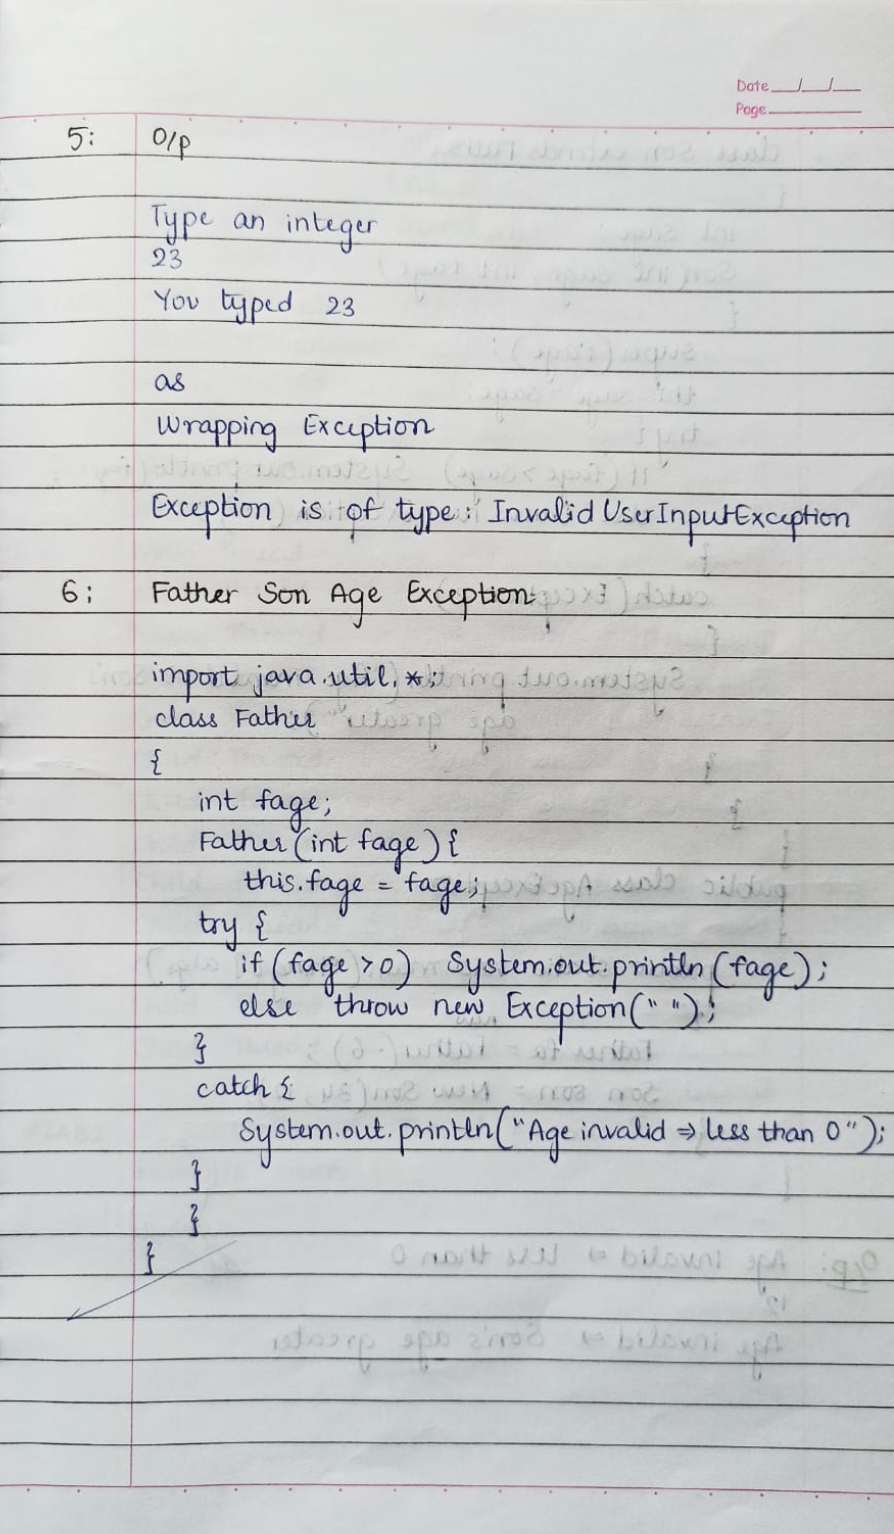 Date __/__/__
Page
5:
O/p
Type an integer
23
You typed 23
as
Wrapping Exception
Exception is of type: InvalidUserInputException
6: Father Son Age Exception:
import java.util.*;
class Father
{
int fage;
Father(int fage){
this.fage = fage;
try {
if (fage > 0) System.out.println(fage);
else throw new Exception(" ");
}
catch {
System.out.println("Age invalid ⇒ less than 0");
}
}
}